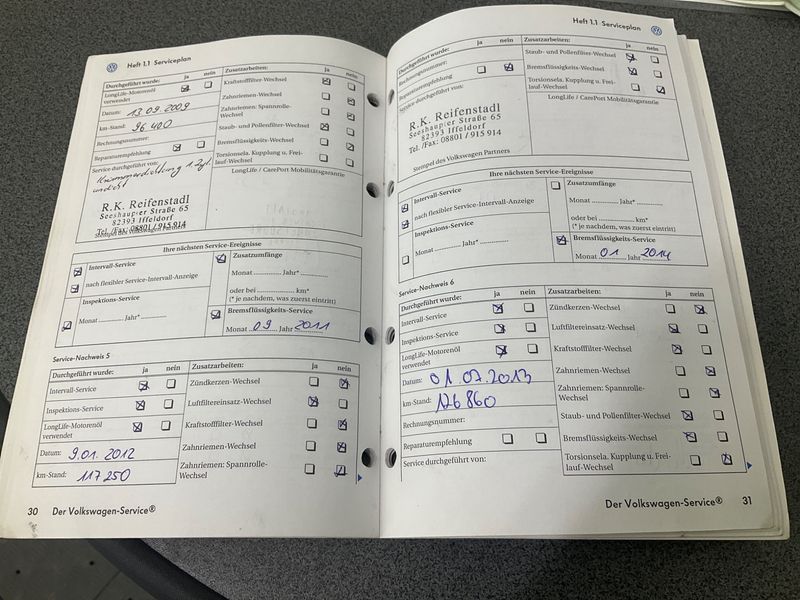 Heft 1.1 Serviceplan
Durchgeführt wurde: ja nein
LongLife-Motorenöl verwendet
Datum: 13.09.2009
km-Stand: 96 400
Rechnungsnummer:
Reparaturempfehlung
Service durchgeführt von:
R.K. Reifenstadl
Seeshaupter Straße 65
82393 Iffeldorf
Tel./Fax: 08801 / 915 914
Stempel des Volkswagen Partners
Zusatzarbeiten: ja nein
Kraftstofffilter-Wechsel
Zahnriemen-Wechsel
Zahnriemen: Spannrolle-
Wechsel
Staub- und Pollenfilter-Wechsel
Bremsflüssigkeits-Wechsel
Torsionsela. Kupplung u. Frei-
lauf-Wechsel
LongLife / CarePort Mobilitätsgarantie
Ihre nächsten Service-Ereignisse
Intervall-Service
nach flexibler Service-Intervall-Anzeige
Inspektions-Service
Monat ............ Jahr* ............
Zusatzumfänge
Monat ............ Jahr* ............
oder bei ............ km*
(* je nachdem, was zuerst eintritt)
Bremsflüssigkeits-Service
Monat 09 Jahr 2011
Service-Nachweis 5
Durchgeführt wurde: ja nein
Intervall-Service
Inspektions-Service
LongLife-Motorenöl
verwendet
Datum: 9.01.2012
km-Stand: 117 250
Zusatzarbeiten: ja nein
Zündkerzen-Wechsel
Luftfiltereinsatz-Wechsel
Kraftstofffilter-Wechsel
Zahnriemen-Wechsel
Zahnriemen: Spannrolle-
Wechsel
30 Der Volkswagen-Service®
Heft 1.1 Serviceplan
Durchgeführt wurde: ja nein
Rechnungsnummer:
Reparaturempfehlung
Service durchgeführt von:
R.K. Reifenstadl
Seeshaupter Straße 65
82393 Iffeldorf
Tel./Fax: 08801 / 915 914
Stempel des Volkswagen Partners
Zusatzarbeiten: ja nein
Staub- und Pollenfilter-Wechsel
Bremsflüssigkeits-Wechsel
Torsionsela. Kupplung u. Frei-
lauf-Wechsel
LongLife / CarePort Mobilitätsgarantie
Ihre nächsten Service-Ereignisse
Intervall-Service
nach flexibler Service-Intervall-Anzeige
Inspektions-Service
Monat ............ Jahr* ............
Zusatzumfänge
Monat ............ Jahr* ............
oder bei ............ km*
(* je nachdem, was zuerst eintritt)
Bremsflüssigkeits-Service
Monat 01 Jahr 2014
Service-Nachweis 6
Durchgeführt wurde: ja nein
Intervall-Service
Inspektions-Service
LongLife-Motorenöl
verwendet
Datum: 01.07.2013
km-Stand: 126 860
Rechnungsnummer:
Reparaturempfehlung
Service durchgeführt von:
Zusatzarbeiten: ja nein
Zündkerzen-Wechsel
Luftfiltereinsatz-Wechsel
Kraftstofffilter-Wechsel
Zahnriemen-Wechsel
Zahnriemen: Spannrolle-
Wechsel
Staub- und Pollenfilter-Wechsel
Bremsflüssigkeits-Wechsel
Torsionsela. Kupplung u. Frei-
lauf-Wechsel
Der Volkswagen-Service® 31